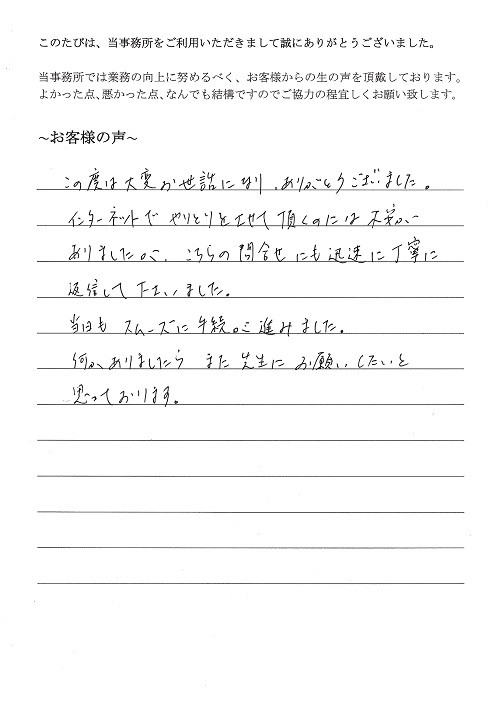 このたびは、当事務所をご利用いただきまして誠にありがとうございました。
当事務所では業務の向上に努めるべく、お客様からの生の声を頂戴しております。
よかった点、悪かった点、なんでも結構ですのでご協力の程宜しくお願い致します。
~お客様の声~
この度は大変お世話になり、ありがとうございました。
インターネットで やりとりをさせて頂くのには 不安が
ありましたが、こちらの問合せにも迅速に丁寧に
返信して下さいました。
当日も スムーズに手続が進みました。
何かありましたら また 先生に お願いしたいと
思っております。